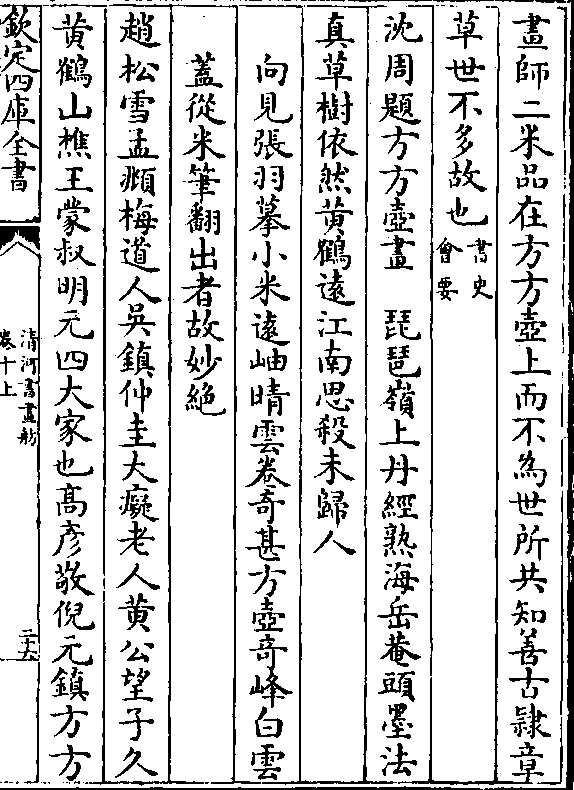 畫師二米品在方方壺上而不為世所共知善古隷章
草世不多故也書史
會要
沈周題方方壺畫　琵琶嶺上丹經熟海岳菴頭墨法
真草樹依然黄鶴逺江南思殺未歸人
向見張羽摹小米逺岫晴雲卷奇甚方壺竒峰白雲
蓋從米筆翻出者故妙絶
趙松雪孟頫梅道人吳鎮仲圭大癡老人黄公望子久
黄鶴山樵王蒙叔明元四大家也髙彦敬倪元鎮方方
欽定四庫全書
清河書畫舫
卷十上
二十六